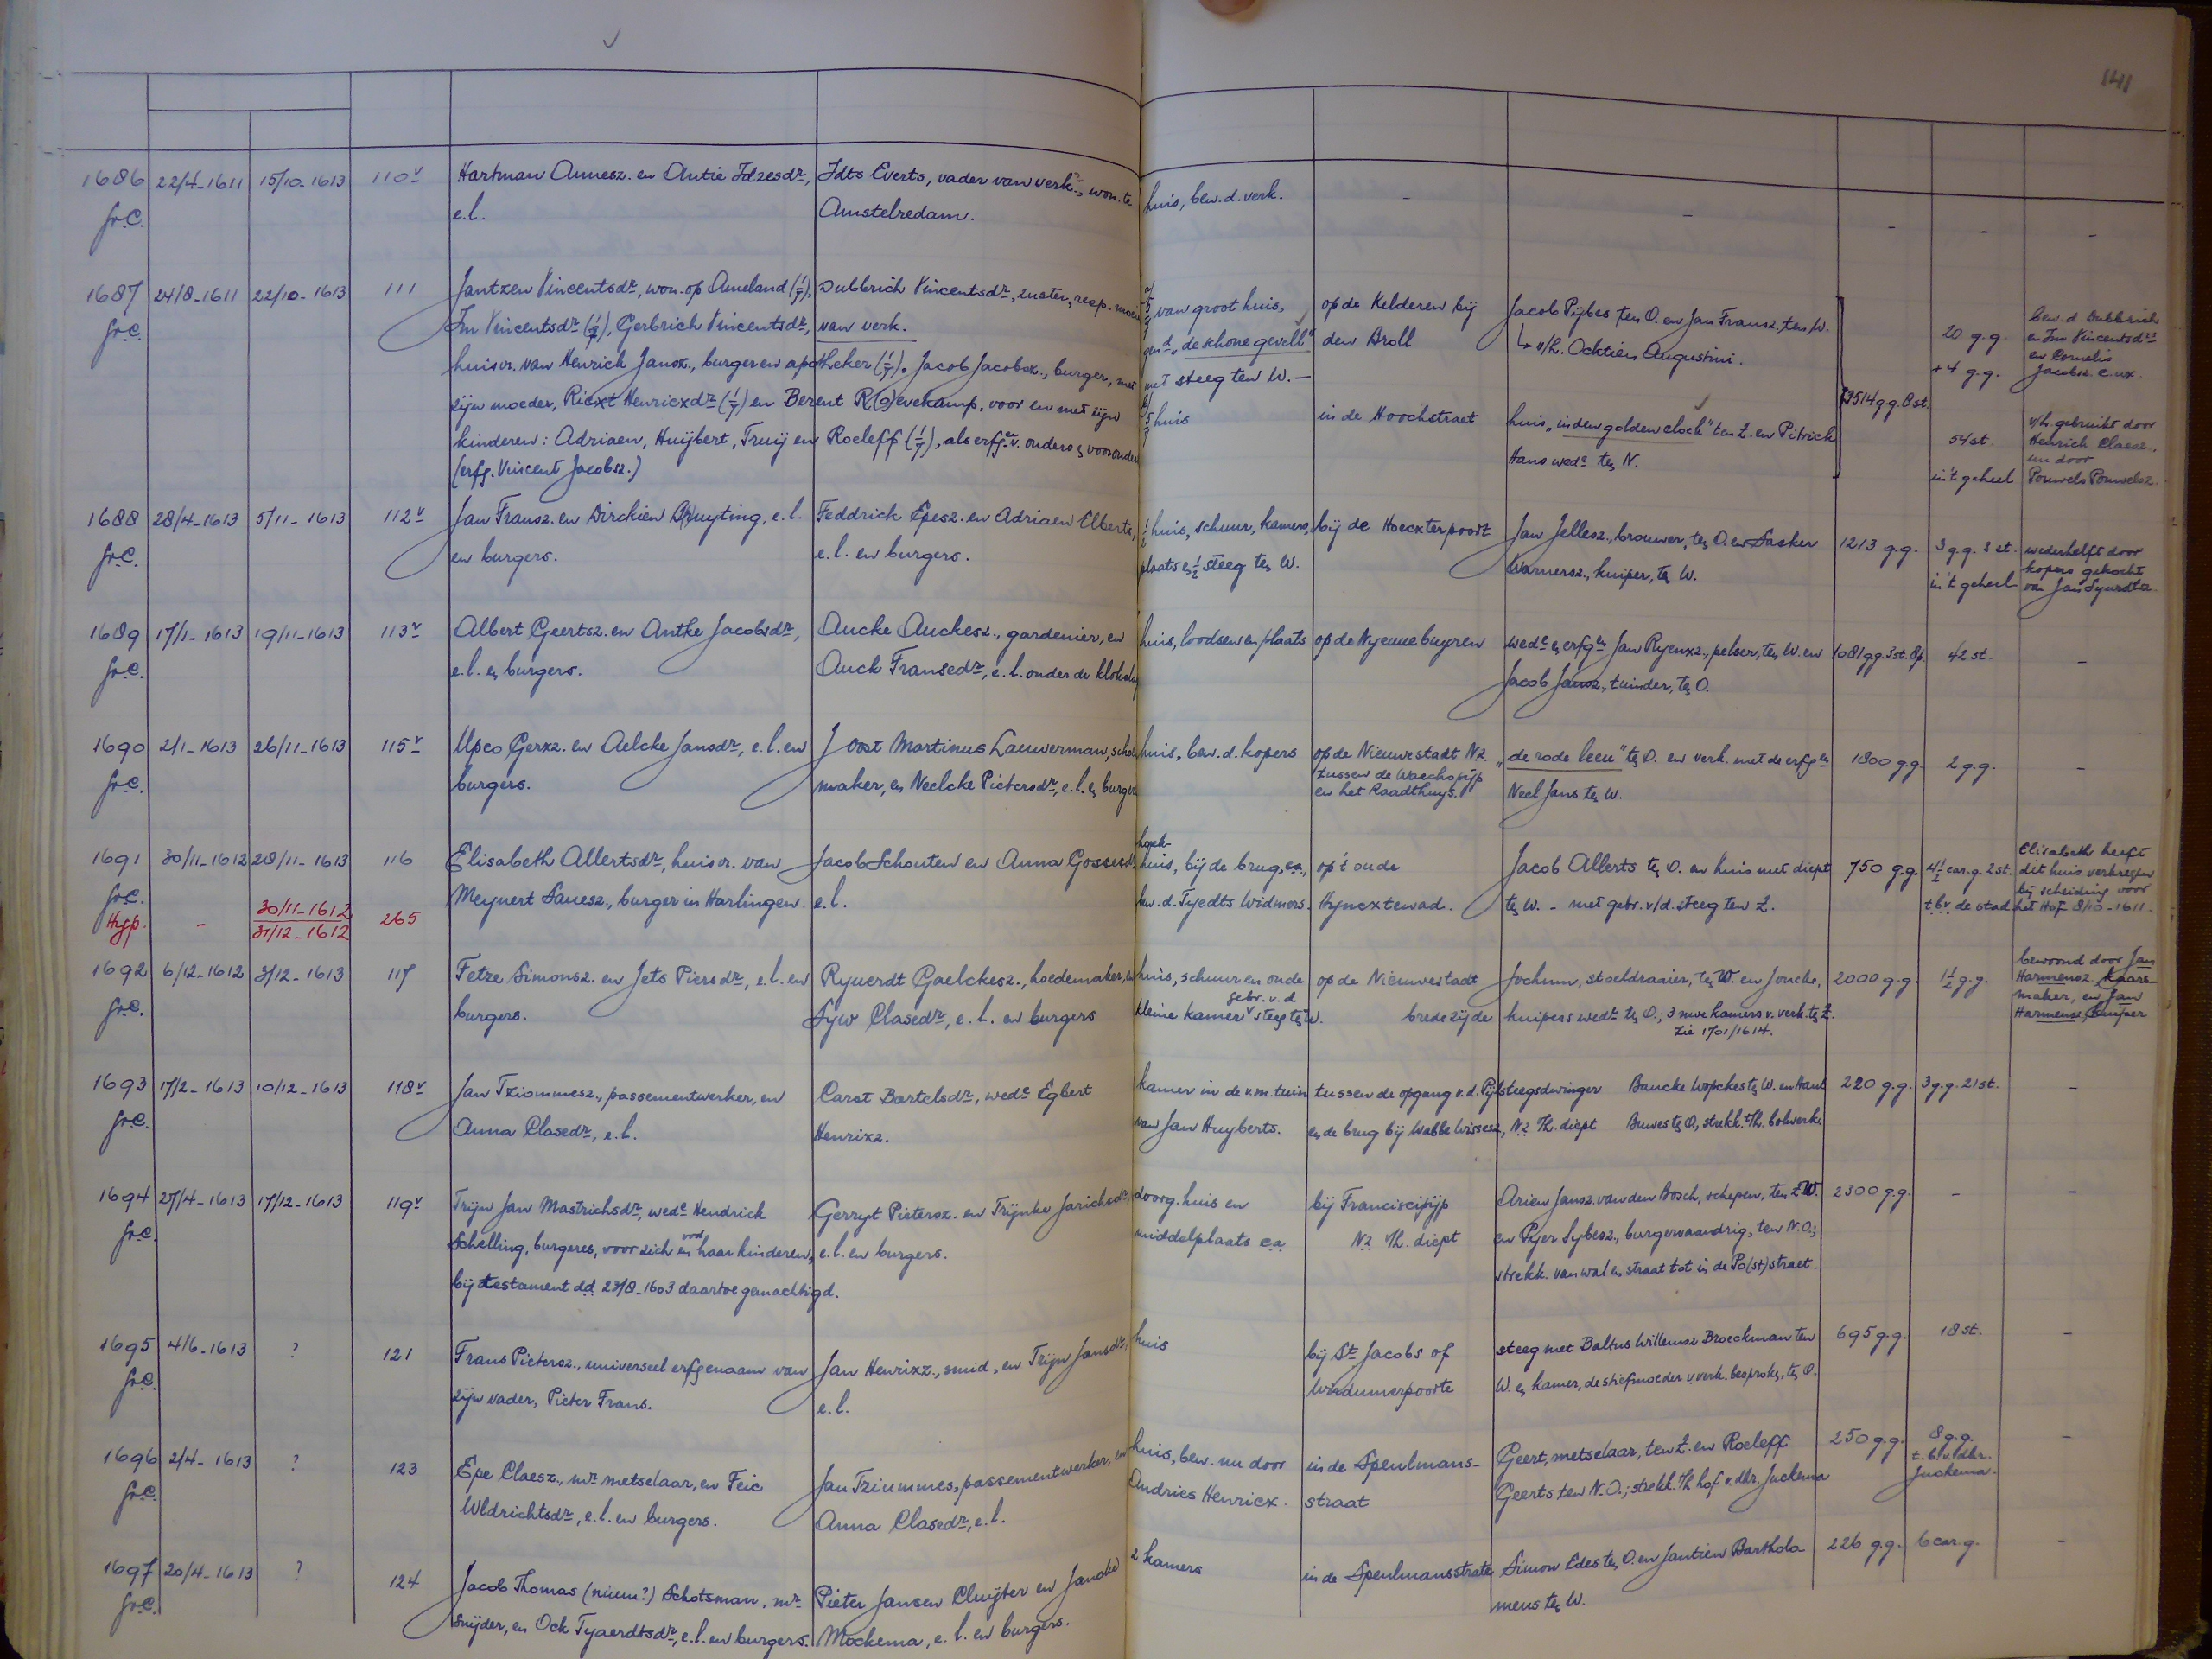 141
1686 22/4-1611 15/10-1613 110v Hartman Annesz. en Antie Idzesdr, Idts Everts, vader van verk., won. te huis, bew. d. verk. - - - - -
gr.C. e.l. Amstelredam.
1687 24/8-1611 22/10-1613 111 Jantzen Vincentsdr, won. op Ameland (1/7), Dubbrich Vincentsdr, zuster, resp. moei van groot huis, op de Kelderen bij Jacob Pijbes ten O. en Jan Fransz. ten W. 20 g.g. bew. d. Dubbrich
gr.C. Im Vincentsdr, Gerbrich Vincentsdr, van verk. gend "de schone gevell" den Broll v/h. Ocktien Augustini. + 4 g.g. en Im Vincentsdr
huisvr. van Henrick Jansz., burger en apotheker (1/7), Jacob Jacobsz., burger, met met steeg ten W. - en Cornelis
zijn moeder, Rixt Henricxdr (1/7) en Berent R(?)evekamp, voor en met zijn huis in de Hoochstraet huis "in den golden clock" ten Z. en Pitrick 3514 g.g. 8 st. 54 st. Jacobsz. c. ux.
kinderen: Adriaen, Huijbert, Truij en Roeleff (1/7), als erfg.en v. ouders en voorouders Hans wede ten N. in 't geheel v/h. gebruikt door
(erfg. Vincent Jacobsz.) Henrick Claesz.,
nu door
Pouwels Pouwelsz.
1688 28/4-1613 5/11-1613 112v Jan Fransz. en Dirckien Druyting, e.l. Feddrick Epesz. en Adriaen Elberts, 1/2 huis, schuur, kamers, bij de Hoecxterpoort Jan Jellesz., brouwer, ten O. en Sasker 1213 g.g. 3 g.g. 3 st. wederhelft door
gr.C. en burgers. e.l. en burgers. plaats en 1/2 steeg ten W. Warnersz., kuiper, ten W. in 't geheel kopers gekocht
van Jan Syurdtsz.
1689 17/1-1613 19/11-1613 113v Albert Geertsz. en Antke Jacobsdr, Aucke Auckesz., gardenier, en huis, loodsen en plaats op de Nyenue buyren wede en erfgen Jan Ryenxz., pelser, ten W. en 1081 g.g. 3 st. 8 p. 42 st. -
gr.C. e.l. en burgers. Auck Fransedr, e.l. onder de klokslag Jacob Jansz., tuinder, ten O.
1690 2/1-1613 26/11-1613 115v Upco Gerxz. en Aelcke Jansdr, e.l. en Joost Martinus Lauwerman, schoe huis, bew. d. kopers op de Nieuwestadt N.z. "de rode leeu" ten O. en verk. met de erfgen 1800 g.g. 2 g.g. -
gr.C. burgers. maker, en Neelcke Pietersdr, e.l. en burgers tussen de Waechspijp Neel Jans ten W.
en het Raadthuys.
1691 30/11-1612 28/11-1613 116 Elisabeth Allertsdr, huisvr. van Jacob Schouten en Anna Gossesdr, hoek- op 't oude Jacob Allerts ten O. en huis met diept 750 g.g. 4 1/2 car.g. 2 st. Elisabeth heeft
gr.C. Meynert Sanesz., burger in Harlingen. e.l. huis, bij de brug, ca., Hyncxtewad. ten W. - met gebr. v/d. steeg ten Z. t.b.v. de stad dit huis verkregen
Hyp. - 30/11-1612 265 bew. d. Tjedts Widmers. bij scheiding voor
31/12-1612 het Hof 8/10-1611.
1692 6/12-1612 3/12-1613 117 Fetze Simonsz. en Jets Piersdr, e.l. en Ryuerdt Gaelckesz., hoedemaker, en huis, schuur en oude op de Nieuwestadt Jochum, stoeldraaier, ten W. en Joncke, 2000 g.g. 1 1/2 g.g. bewoond door Jan
gr.C. burgers. Syw Clasedr, e.l. en burgers kleine kamer gebr. v. d steeg ten W. brede zijde kuipers wedr ten O., 3 nwe kamers v. verk. ten Z. Harmensz. kaars-
zie 1701/1614. maker, en Jan
Harmensz. kuiper
1693 17/2-1613 10/12-1613 118v Jan Tziommesz., passementwerker, en Carst Bartelsdr, wede Egbert kamer in de v.m. tuin tussen de opgang v.d. Pijlsteegsdwinger Baucke Wopckes ten W. en Hans 220 g.g. 3 g.g. 21 st. -
gr.C. Anna Clasedr, e.l. Henrixz. van Jan Huyberts. en de brug bij Wabbe Wissesz., Nz. 't h. diept Buwes ten O, strekk. t/h. bolwerk.
1694 27/4-1613 17/12-1613 119v Trijn Jan Mastrichsdr, wede Hendrick Gerryt Pietersz. en Trijnke Jarichsdr, doorg. huis en bij Franciscipijp Arien Jansz. van den Bosch, schepen, ten ZW. 2300 g.g. - -
gr.C. Schelling, burgeres, voor zich en voor haar kinderen, e.l. en burgers. middelplaats ca Nz 't h. diept en Pyer Sybesz., burgervaandrig, ten N.O.;
bij testament dd 23/8-1603 daartoe gemachtigd. strekk. van wal en straat tot in de Po(st)straet.
1695 4/6-1613 ? 121 Frans Pietersz., universeel erfgenaam van Jan Henrixz., smid, en Trijn Jansdr, huis bij St Jacobs of steeg met Baltus Willemsz Broeckman ten 695 g.g. 18 st. -
gr.C. zijn vader, Pieter Frans. e.l. Wirdumerpoorte W. en kamer, de stiefmoeder v. verk. besproken, ten O.
1696 2/4-1613 ? 123 Epe Claesz., mr metselaar, en Feic Jan Tziummes, passementwerker, en huis, bew. nu door in de Speulmans- Geert, metselaar, ten Z. en Roeleff 250 g.g. 8 g.g. -
gr.C. Uldrichtsdr, e.l. en burgers. Anna Clasedr, e.l. Andries Henricx. straat Geerts ten N.O.; strekk. t/h hof v. dhr. Juckema t.b.v. dhr.
Juckema.
1697 20/4-1613 ? 124 Jacob Thomas (nium?) Schotsman, mr Pieter Jansen Cluijter en Jancke 2 kamers in de Speulmansstrate Simon Edes ten O. en Jantien Barthola 226 g.g. 6 car.g. -
gr.C. snijder, en Ock Tyaerdtsdr, e.l. en burgers. Mockema, e.l. en burgers. mens ten W.